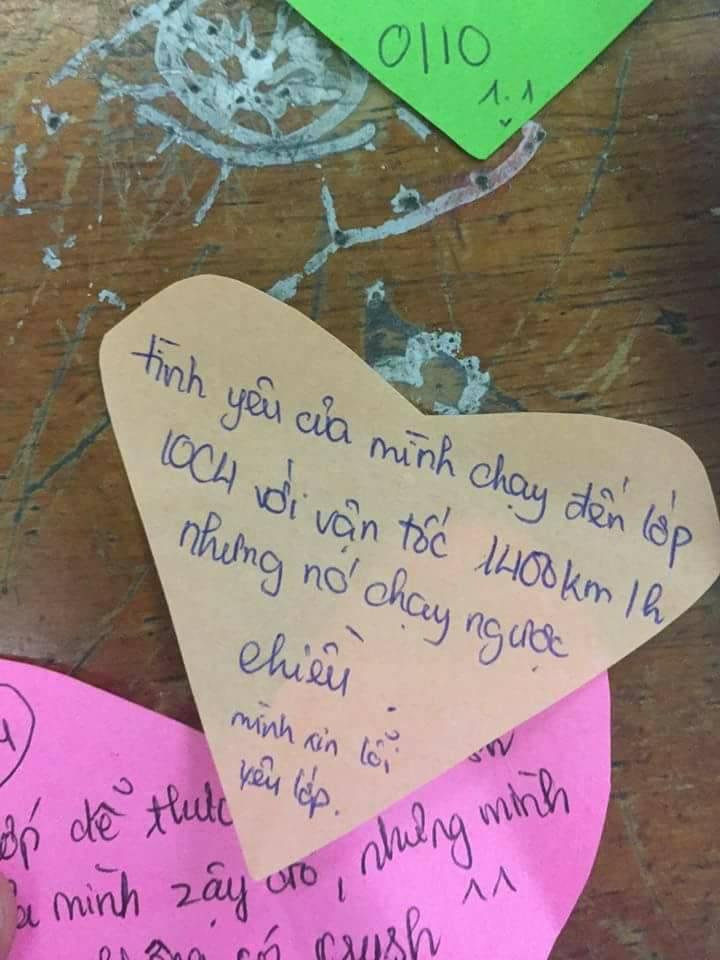 0110
1.1
tình yêu của mình chạy đến lớp
10C4 với vận tốc 1400km/h
nhưng nó chạy ngược
chiều.
mình xin lỗi
yêu lớp.
để
mình zậy, nhưng mình
có crush ^^